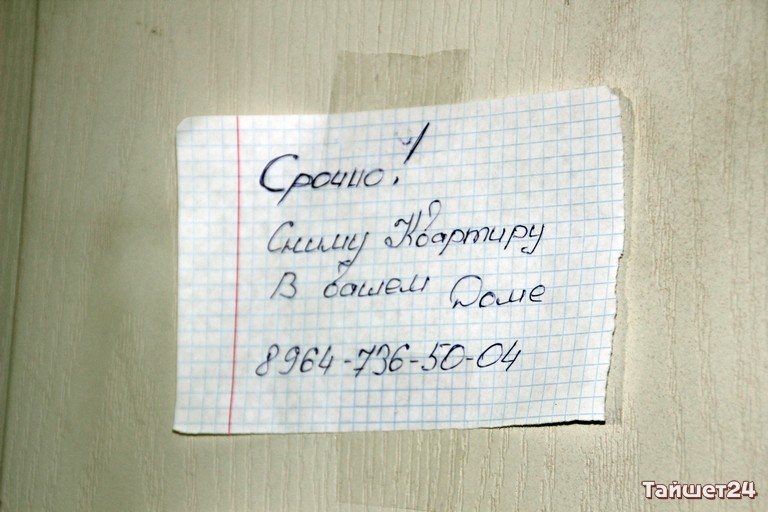 Срочно!
Сниму Квартиру
В вашем Доме
8964-736-50-04
Тайшет24